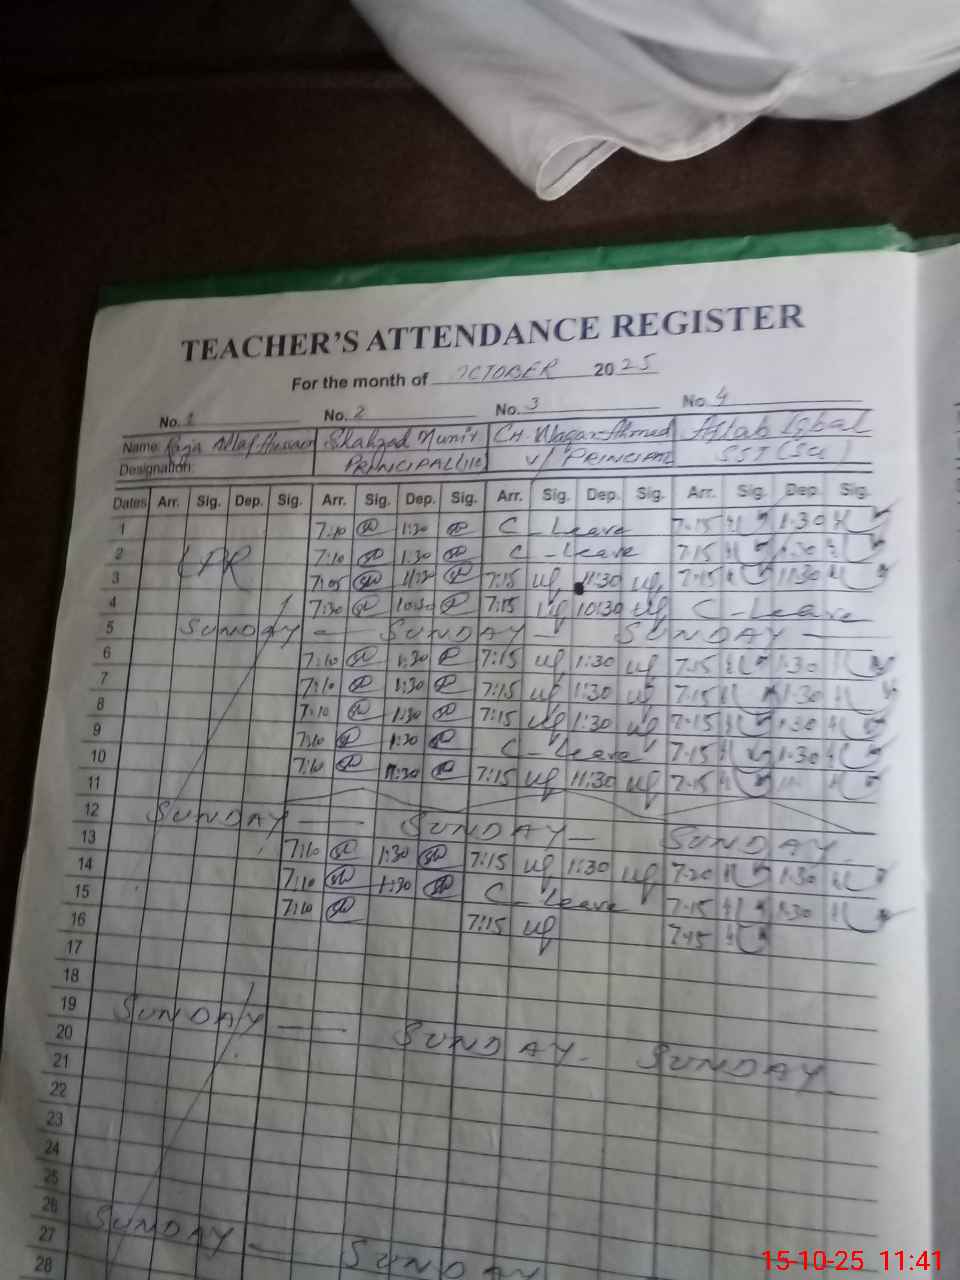 TEACHER'S ATTENDANCE REGISTER
For the month of OCTOBER 2025
No. 1 No. 2 No. 3 No. 4
Name: Raja Altaf Hussain Shahzad Munir CH. Waqar Ahmed Aftab Iqbal
Designation: PRINCIPAL V/PRINCIPAL SST (Sci)
Dates Arr. Sig. Dep. Sig. Arr. Sig. Dep. Sig. Arr. Sig. Dep. Sig. Arr. Sig. Dep. Sig.
1 7:10 1:30 C-Leave 7:15 1:30
2 LPR 7:10 1:30 C-Leave 7:15 1:30
3 7:05 11:30 7:15 11:30 7:15 11:30
4 7:30 10:30 7:15 10:30 C-Leave
5 SUNDAY — SUNDAY — SUNDAY —
6 7:10 1:30 7:15 1:30 7:15 1:30
7 7:10 1:30 7:15 1:30 7:15 1:30
8 7:10 1:30 7:15 1:30 7:15 1:30
9 7:10 1:30 C-Leave 7:15 1:30
10 7:10 11:30 7:15 11:30 7:15
11
12 SUNDAY — SUNDAY — SUNDAY
13 7:10 1:30 7:15 1:30 7:20 1:30
14 7:10 1:30 C-Leave 7:15 1:30
15 7:10 7:15 7:45
16
17
18
19 SUNDAY — SUNDAY - SUNDAY
20
21
22
23
24
25
26 SUNDAY — SUNDAY
27
28
15-10-25 11:41